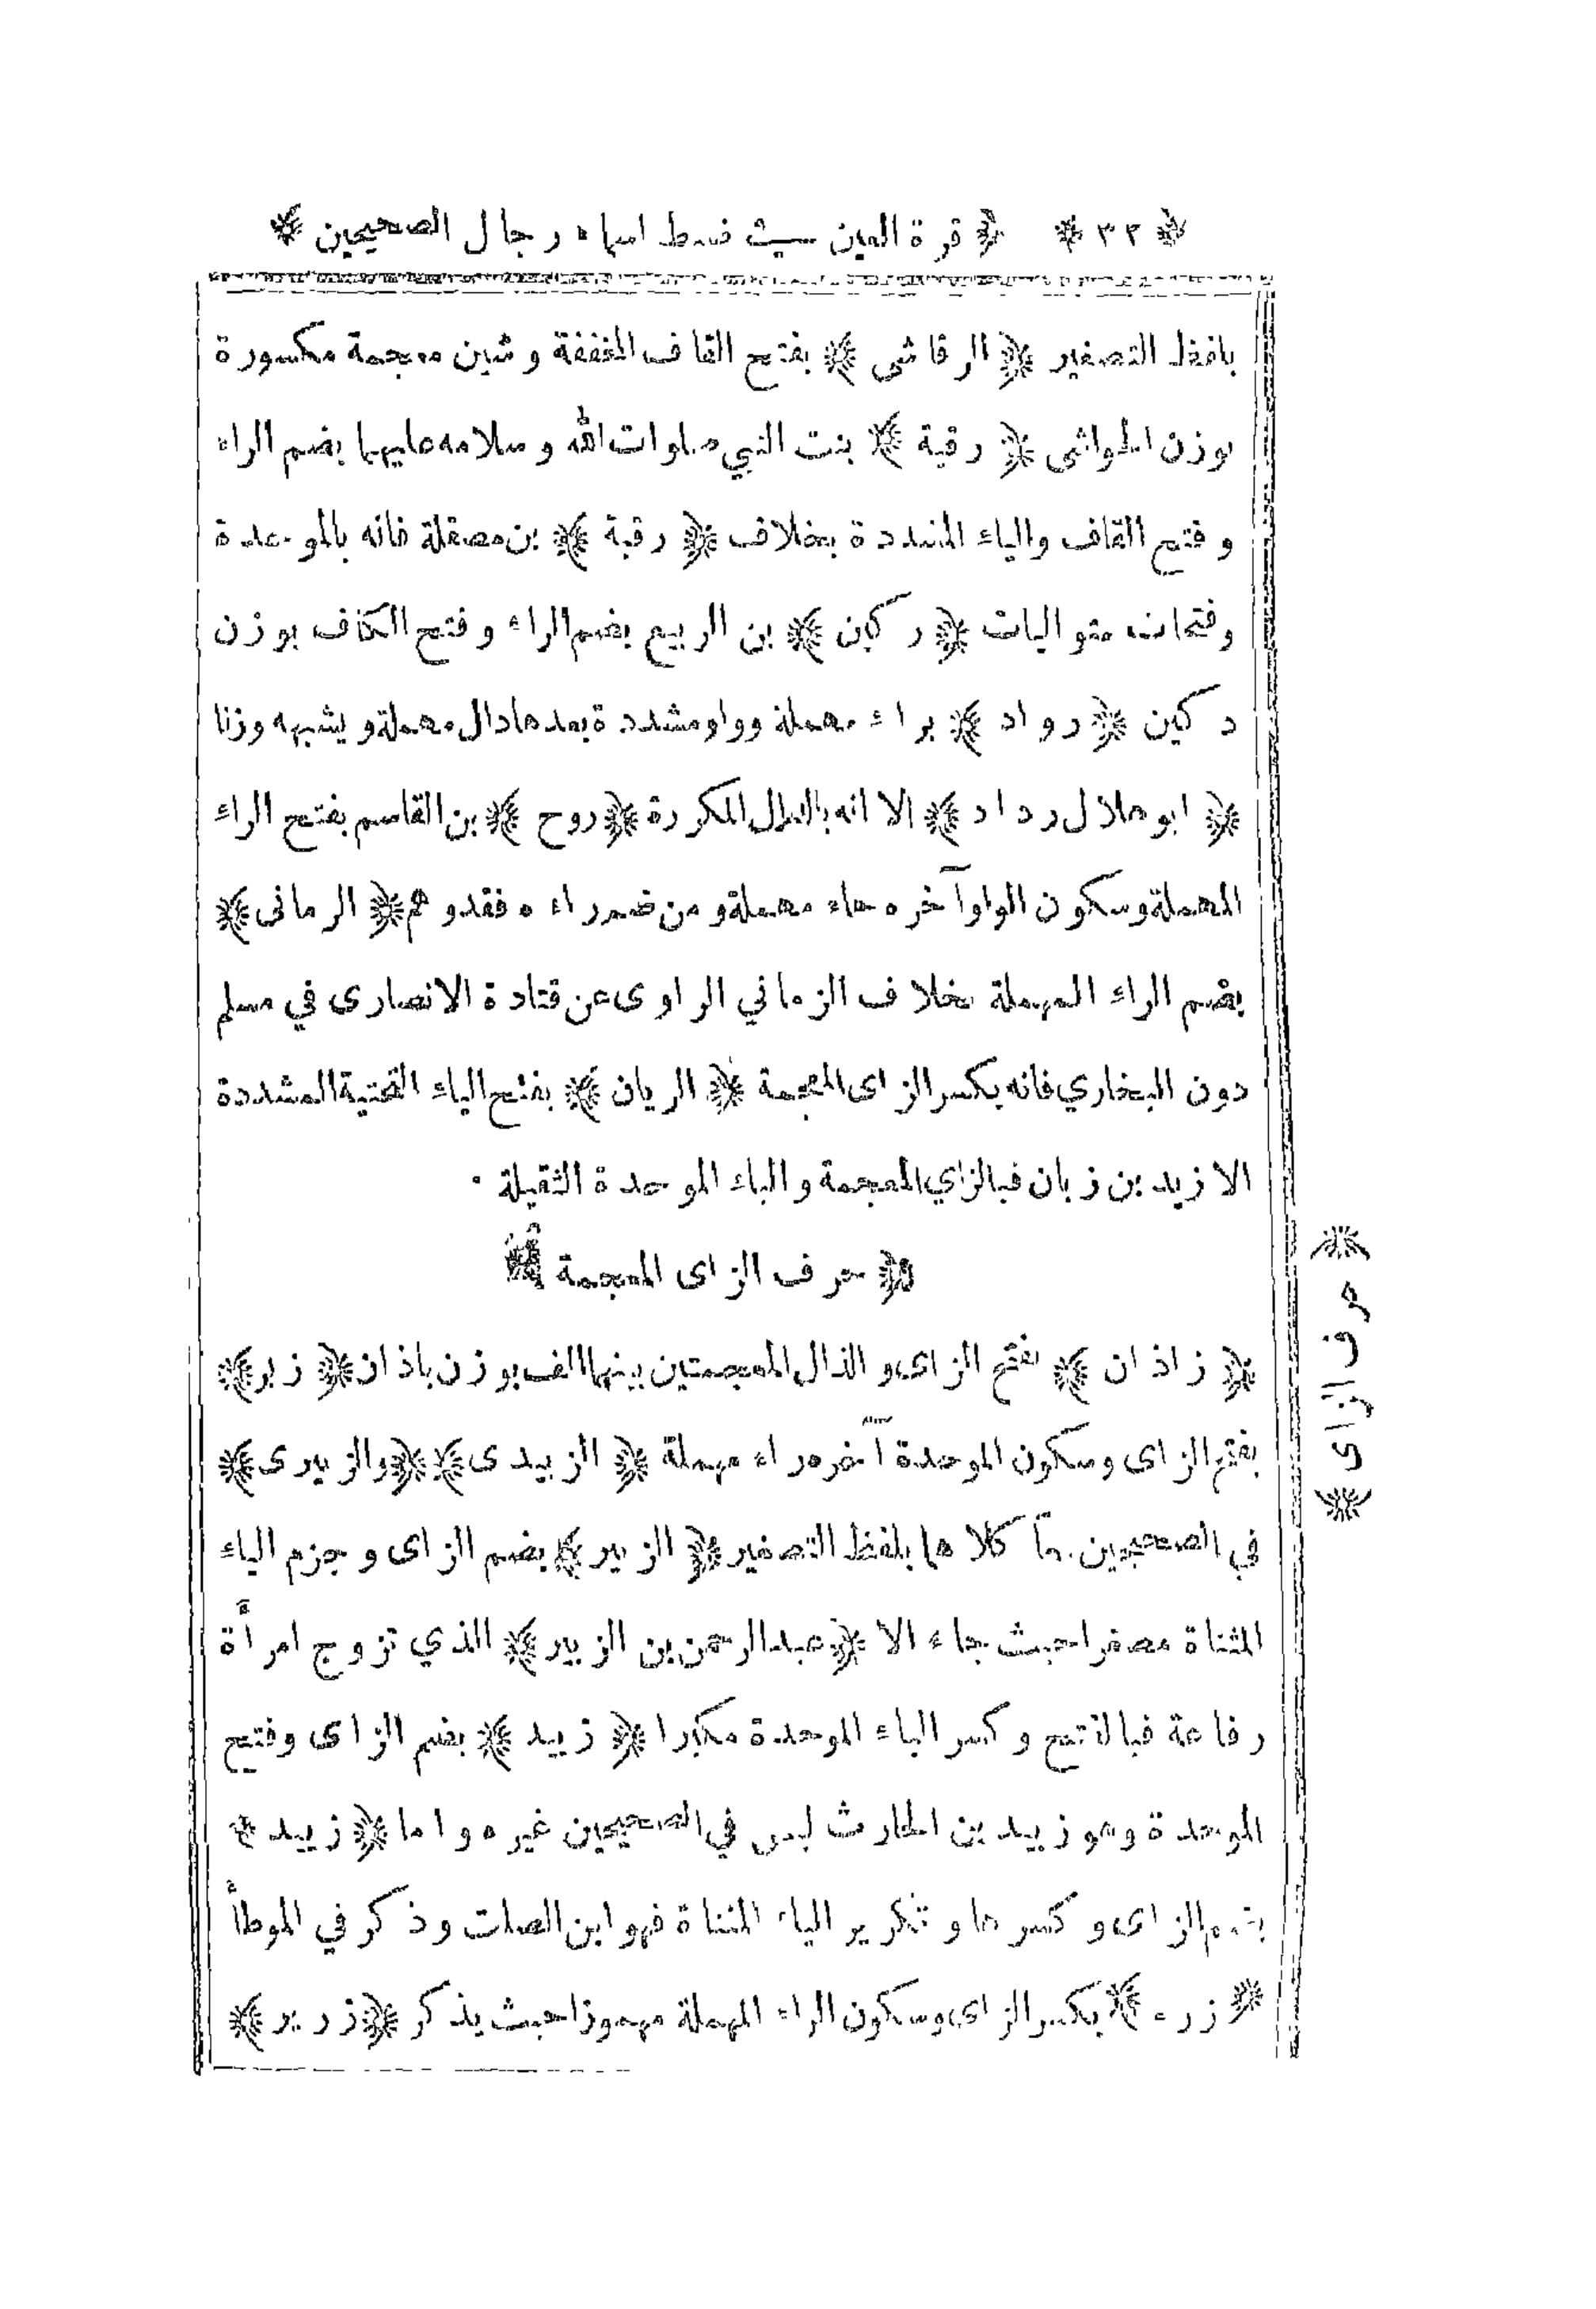 ﴿ ٣٢ ﴾ ﴿ قرة العين في ضبط اسماء رجال الصحيحين ﴾
بلفظ التصغير ﴿ الرقاشى ﴾ بفتح القاف المخففة وشين معجمة مكسورة
بوزن الحواشى ﴿ رقية ﴾ بنت النبي صلوات الله وسلامه عليهما بضم الراء
وفتح القاف والياء المشددة بخلاف ﴿ رقبة ﴾ بن مصقلة فانه بالموحدة
وفتحات متواليات ﴿ ركين ﴾ بن الربيع بضم الراء وفتح الكاف بوزن
دكين ﴿ رواد ﴾ براء مهملة وواو مشددة بعدها دال مهملة ويشبهه وزنا
﴿ ابو هلال رداد ﴾ الا انه بالدال المكررة ﴿ روح ﴾ بن القاسم بفتح الراء
المهملة وسكون الواو آخره حاء مهملة ومن ضم راءه فقد وهم ﴿ الرمانى ﴾
بضم الراء المهملة بخلاف الزماني الراوى عن قتادة الانصارى في مسلم
دون البخاري فانه بكسر الزاى المعجمة ﴿ الريان ﴾ بفتح الياء التحتية المشددة
الا زيد بن زبان فبالزاي المعجمة والباء الموحدة الثقيلة ٠
﴿ حرف الزاى المعجمة ﴾
﴿ حرف الزاى ﴾
﴿ زاذان ﴾ بفتح الزاى والذال المعجمتين بينهما الف بوزن باذان ﴿ زبر ﴾
بفتح الزاى وسكون الموحدة آخره راء مهملة ﴿ الزبيدى ﴾ ﴿ والزبيرى ﴾
في الصحيحين كلاهما بلفظ التصغير ﴿ الزبير ﴾ بضم الزاى وجزم الياء
المثناة مصغرا حيث جاء الا ﴿ عبد الرحمن بن الزبير ﴾ الذي تزوج امرأة
رفاعة فبالفتح وكسر الباء الموحدة مكبرا ﴿ زبيد ﴾ بضم الزاى وفتح
الموحدة وهو زبيد بن الحارث ليس في الصحيحين غيره واما ﴿ زييد ﴾
بضم الزاى وكسرها وتكرير الياء المثناة فهو ابن الصلت وذكر في الموطأ
﴿ زرء ﴾ بكسر الزاى وسكون الراء المهملة مهموزا حيث يذكر ﴿ زرير ﴾